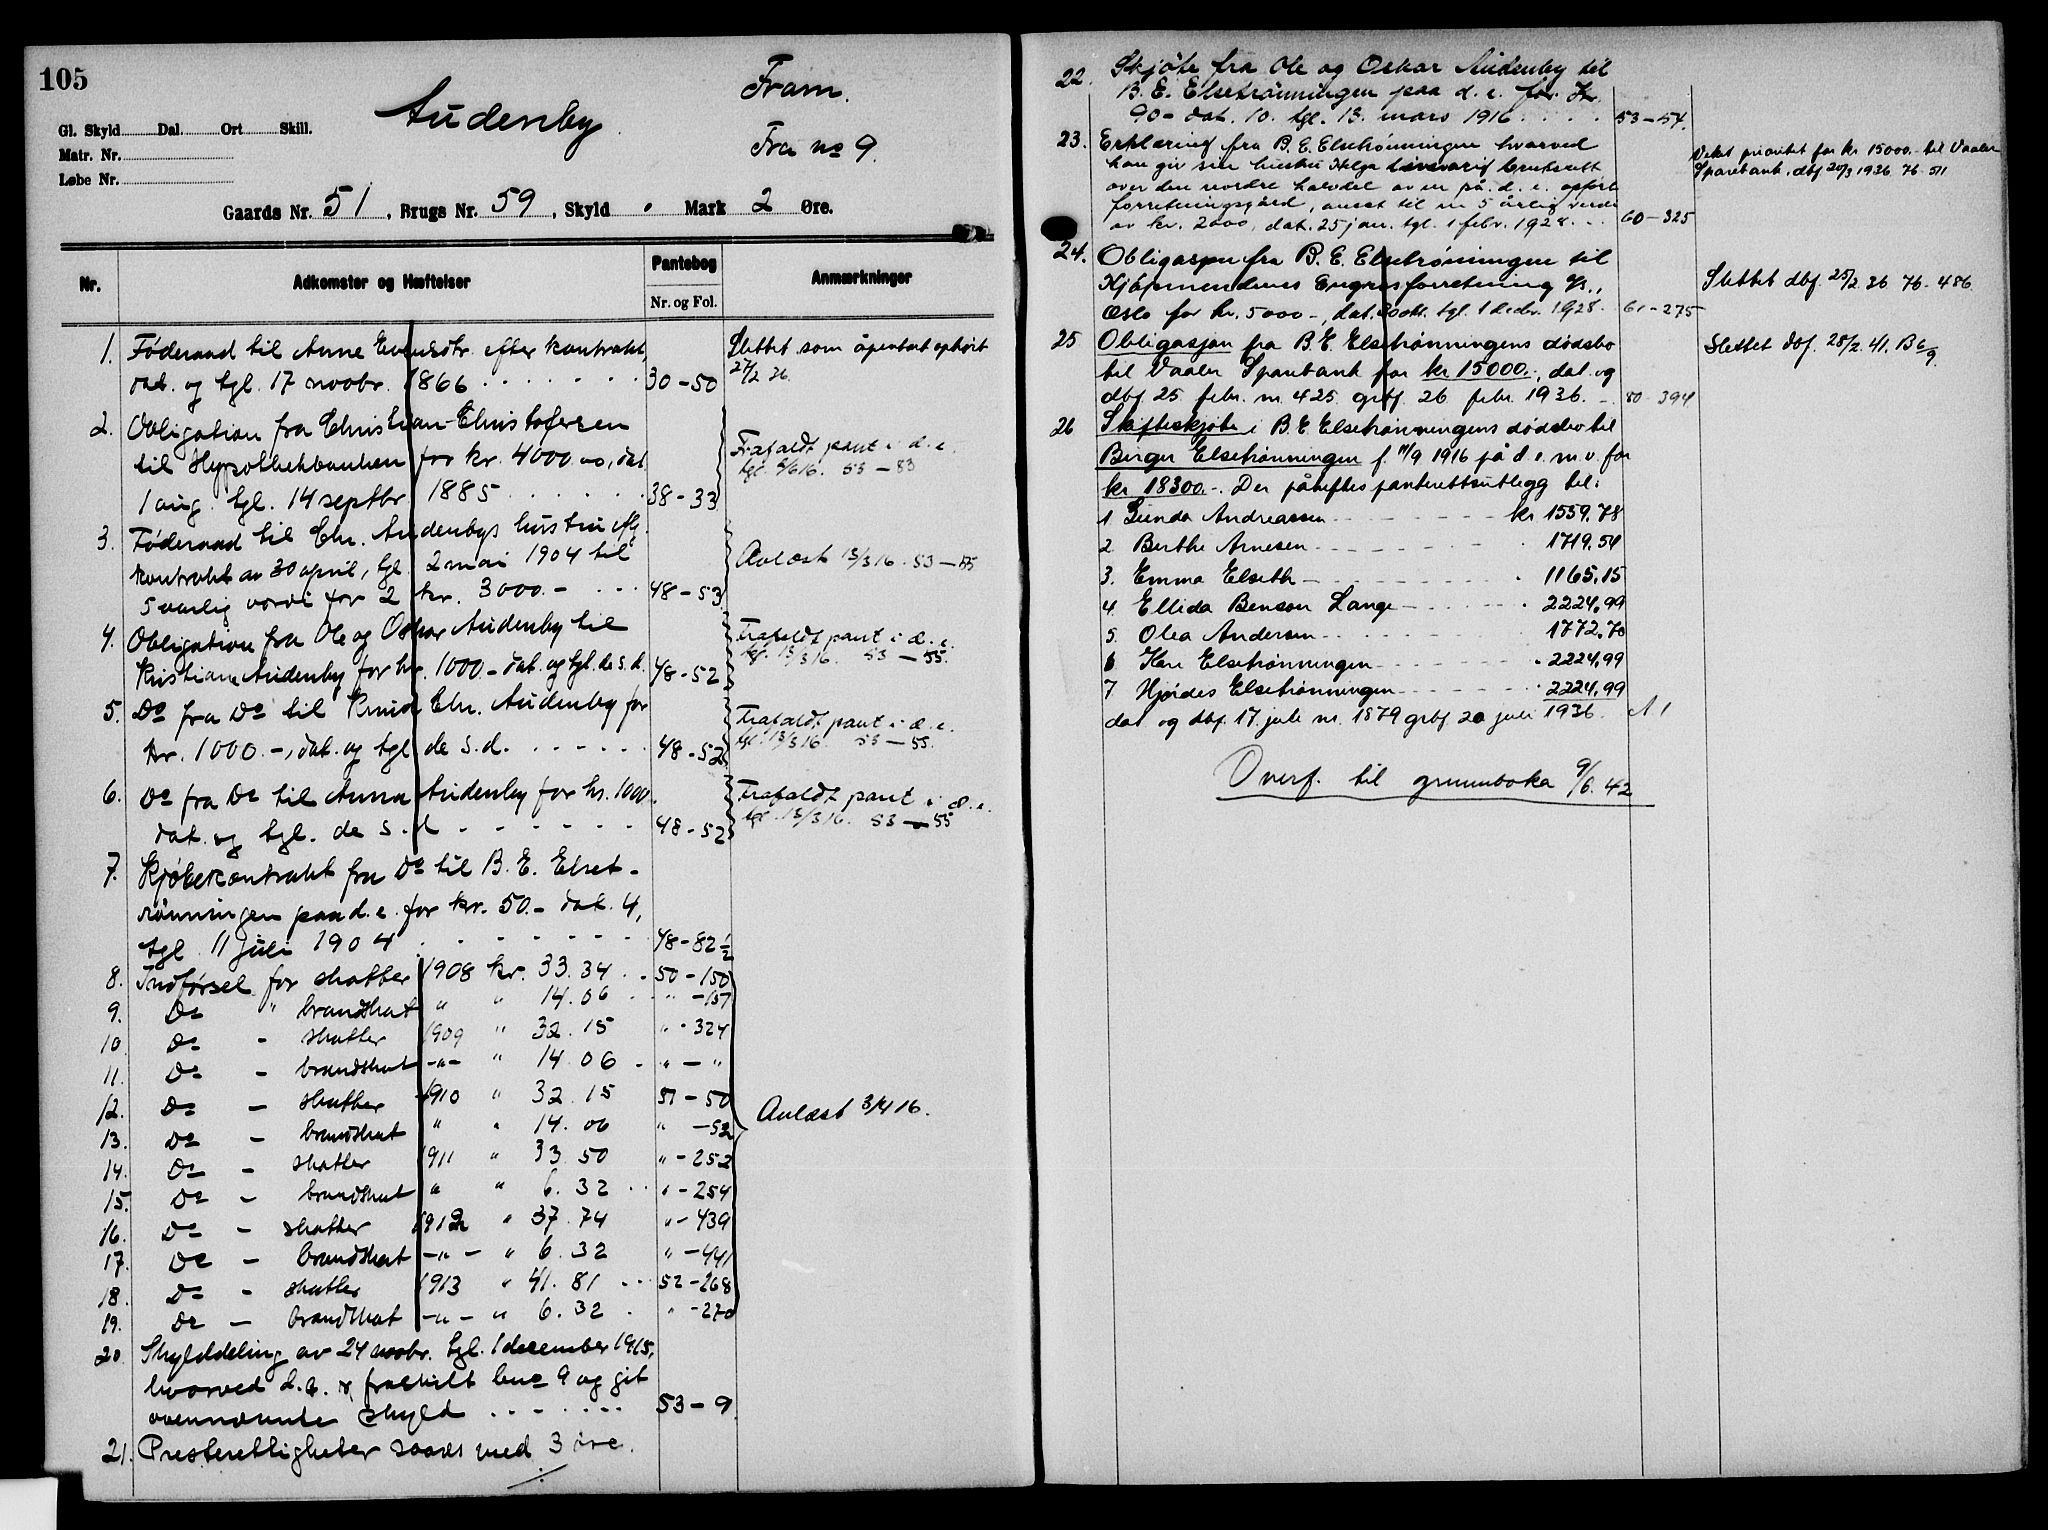 105
Audenby
Fram.
Fra no 9.
Gl. Skyld Dal. Ort Skill.
Matr. Nr.
Løbe Nr.
Gaards Nr. 51, Brugs Nr. 59, Skyld · Mark 2 Øre.
Nr. Adkomster og Hæftelser Pantebog Anmærkninger
Nr. og Fol.
1. Føderaad til Anne Evensdtr. efter kontrakt, Slettet som åpenbart ophørt
dat. og tgl. 17 novbr. 1866 30-50 27/2 36.
2. Obligation fra Christian Christofersen
til Hypothekbanken for kr. 4000.00, dat. Frafaldt pant i d. e.
1 aug. tgl. 14 septbr 1885 38-33 tgl. 5/6 16. 53-83
3. Føderaad til Chr. Audenbys hustru efter
kontrakt av 30 april, tgl. 2 mai 1904 til Avlæst 13/3 16. 53-55
5 aarlig værdi for 2 kr. 3000.- 48-53
4. Obligation fra Ole og Oskar Audenby til Frafaldt pant i d. e.
Kristiane Audenby for kr. 1000.- dat. og tgl. de s. d. 48-52 tgl. 13/3 16. 53-55.
5. Do fra Do til Knud Chr. Audenby for Frafaldt pant i d. e.
kr. 1000.-, dat. og tgl. de s. d. 48-52 tgl. 13/3 16. 53-55.
6. Do fra Do til Anna Audenby for kr. 1000. Frafaldt pant i d. e.
dat. og tgl. de s. d. 48-52 tgl. 13/3 16. 53-55
7. Kjøbekontrakt fra Do til B. E. Elset-
rønningen paa d. e. for kr. 50.- dat. 4,
tgl. 11 juli 1904 48-82 1/2
8. Indførsel for skatter 1908 kr. 33.34 50-150
9. Do " brandskat " " 14.06 " -157
10 Do - skatter 1909 " 32.15 " - 324
11. Do - brandskat -"- " 14.06 " - "
12. Do - skatter 1910 " 32.15 51-50 Avlæst 3/4 16.
13. Do - brandskat " " 14.06 " -52
14. Do - skatter 1911 " 33.50 " - 252
15. Do - brandskat " " 6.32 " - 254
16. Do - skatter 1912 " 37.74 " - 439
17. Do - brandskat -"- " 6.32 " - 441
18. Do - skatter 1913 " 41.81 52-268
19. Do - brandskat -"- " 6.32 " -270
20. Skylddeling av 24 novbr. tgl. 1 december 1915,
hvorved d. e. er fraskilt bno 9 og git
ovennævnte skyld 53-9
21. Presterettigheter svares med 3 øre.
22. Skjøte fra Ole og Oskar Audenby til
B. E. Elsetrønningen paa d. e. for Kr.
90- dat. 10. tgl. 13. mars 1916 53-54.
23. Erklæring fra B. E. Elsetrønningen hvorved
han gir sin hustru Helga livsvarig bruksrett Veket prioritet for kr 15000.- til Vaaler
over den nordre halvdel av en på d. e. opført Sparebank. dbf 20/3 1936 76-511
forretningsgård, ansat til en 5 årlig verdi
av kr. 2000, dat. 25 jan. tgl. 1 febr. 1928. 60-325
24. Obligasjon fra B. E. Elsetrønningen til
Kjøpmendenes Engrosforretning A/S., Slettet dbf. 25/2 36 76-486
Oslo for kr. 5000-, dat. 20 okt. tgl. 1 decbr. 1928. 61-275
25 Obligasjon fra B. E. Elsetrønningens dødsbo Slettet dbf. 28/2. 41. B 6/9.
til Vaaler Sparebank for kr 15000.-, dat. og
dbf 25. febr. nr. 425. grbf. 26 febr. 1936. 80-394
26 Skifteskjøte i B. E. Elsetrønningens dødsbo til
Birger Elsetrønningen f. 11/9 1916 på d. e. m. v. for
kr 18300.-. Der påheftes panterettsutlegg til:
1 Gunda Andreassen kr 1559.78
2. Berthe Arnesen 1719.54
3. Emma Elseth 1165.15
4. Ellida Benson Lange 2224.99
5. Olea Andersen 1772.70
6 Kåre Elsetrønningen 2224.99
7 Hjørdes Elsetrønningen 2224.99
dat og dbf. 17. juli nr. 1879 grbf 20 juli 1936. A 1
Overf. til grunnboka 9/6. 42